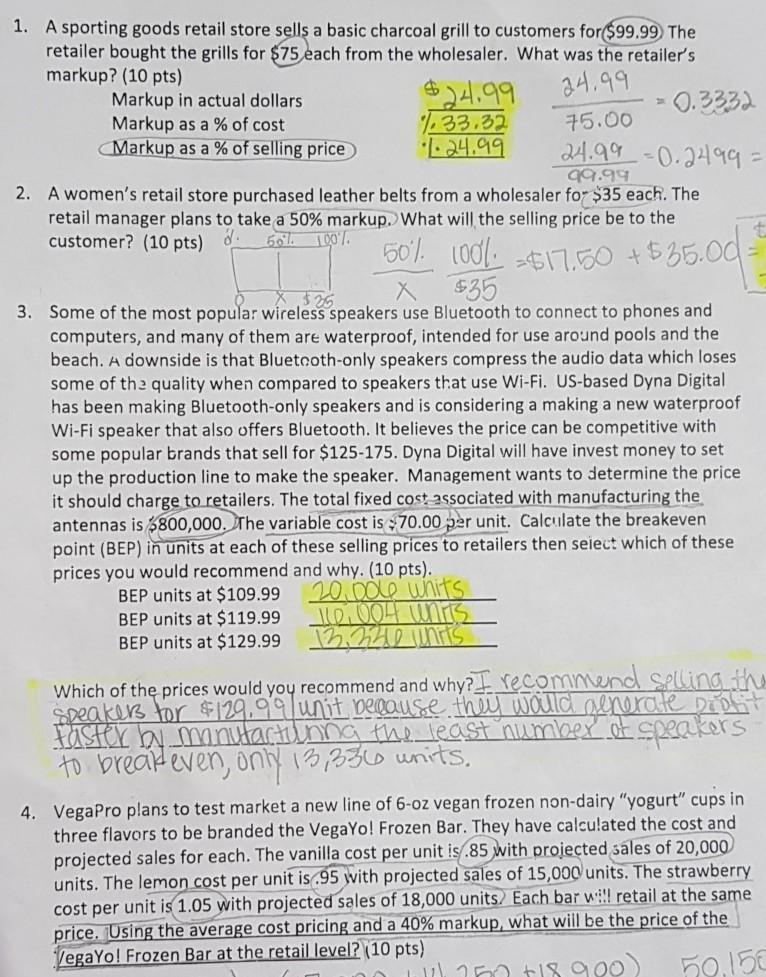 1. A sporting goods retail store sells a basic charcoal grill to customers for $99.99. The
retailer bought the grills for $75 each from the wholesaler. What was the retailer's
markup? (10 pts)
Markup in actual dollars $24.99
Markup as a % of cost % 33.32
Markup as a % of selling price % 24.99
24.99
75.00 = 0.3332
24.99
99.99 = 0.2499 =
2. A women's retail store purchased leather belts from a wholesaler for $35 each. The
retail manager plans to take a 50% markup. What will the selling price be to the
customer? (10 pts)
50% 100%
0 X $35
50% 100% = $17.50 + $35.00 =
X $35
3. Some of the most popular wireless speakers use Bluetooth to connect to phones and
computers, and many of them are waterproof, intended for use around pools and the
beach. A downside is that Bluetooth-only speakers compress the audio data which loses
some of the quality when compared to speakers that use Wi-Fi. US-based Dyna Digital
has been making Bluetooth-only speakers and is considering a making a new waterproof
Wi-Fi speaker that also offers Bluetooth. It believes the price can be competitive with
some popular brands that sell for $125-175. Dyna Digital will have invest money to set
up the production line to make the speaker. Management wants to determine the price
it should charge to retailers. The total fixed cost associated with manufacturing the
antennas is $800,000. The variable cost is $70.00 per unit. Calculate the breakeven
point (BEP) in units at each of these selling prices to retailers then select which of these
prices you would recommend and why. (10 pts).
BEP units at $109.99 20,006 units
BEP units at $119.99 16,004 units
BEP units at $129.99 13,336 units
Which of the prices would you recommend and why? I recommend selling the
speakers for $129.99/unit because they would generate profit
faster by manufacturing the least number of speakers
to break even, only 13,336 units.
4. VegaPro plans to test market a new line of 6-oz vegan frozen non-dairy "yogurt" cups in
three flavors to be branded the VegaYo! Frozen Bar. They have calculated the cost and
projected sales for each. The vanilla cost per unit is .85 with projected sales of 20,000
units. The lemon cost per unit is .95 with projected sales of 15,000 units. The strawberry
cost per unit is 1.05 with projected sales of 18,000 units. Each bar will retail at the same
price. Using the average cost pricing and a 40% markup, what will be the price of the
VegaYo! Frozen Bar at the retail level? (10 pts)
250 + 18,900)